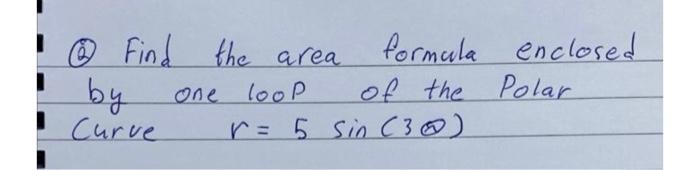 ② Find the area formula enclosed
by one loop of the Polar
Curve r = 5 sin (3θ)